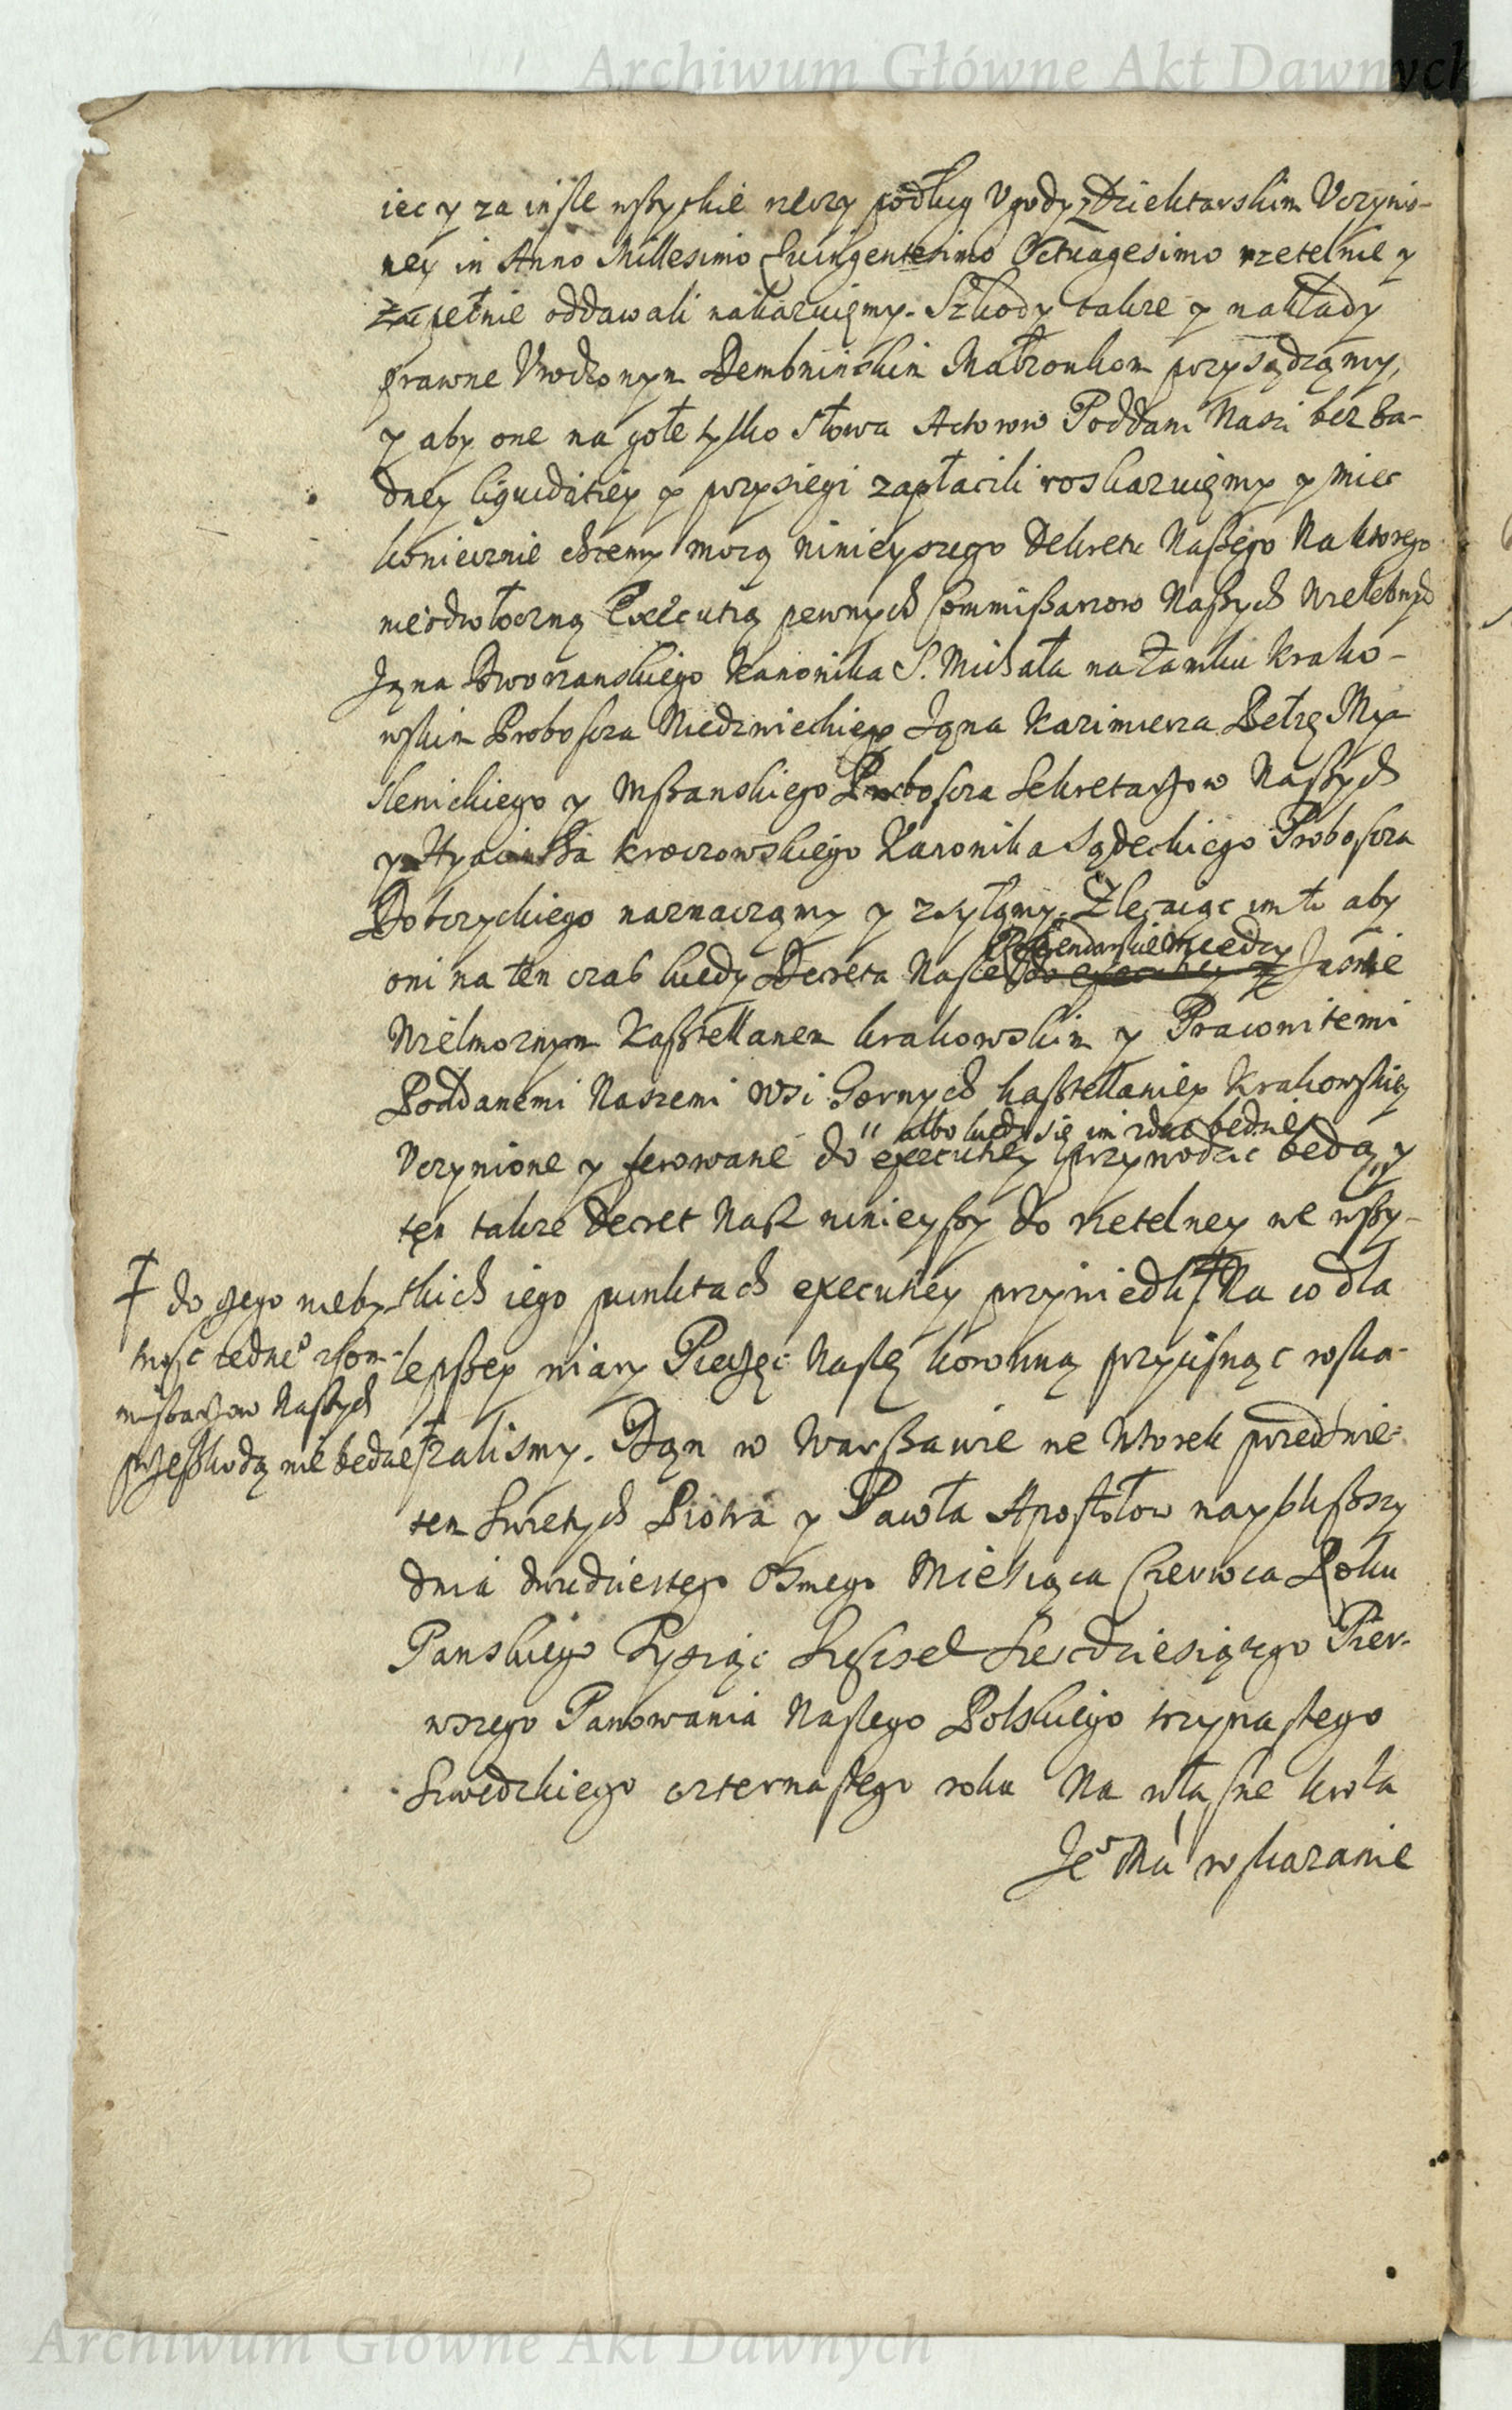 Archiwum Główne Akt Dawnych
iec y za insze wszytkie rzeczy podług Vgody z Dzielctarskim Vczynio-
ney in Anno Millesimo Quingentesimo Octuagesimo rzetelnie y
zupełnie oddawali nakazuięmy. Szkody takze y nakłady
prawne Vrodzonym Dembninskim Małzonkom przysądzamy,
y aby one na gołe tylko słowa Actorow Poddani Nasi bez ża-
dney liquidatiey y przysiegi zapłacili roskazuięmy y miec
koniecznie chcemy mocą ninieyszego Dekretu Naszego Na ktorego
nieodwłoczną Executią pewnych Commissarzow Naszych Wielebnych
Jana Dworzanskiego Kanonika S. Michała na Zamku Krako-
wskim Proboscza Niedzwieckiego Jana Kazimierza Petrę My-
slenickiego y Mszanskiego Proboscza Sekretarzow Naszych
y Hyacintha Kroczowskiego Kanonika Sądeckiego Proboscza
Dobczyckiego naznaczamy y zsyłamy. Zlecaiąc im to aby
Referendarskie miedzy
oni na ten czas kiedy Decreta Nasze do executiey z Jasnie
Wielmoznym Kasztellanem krakowskim y Pracowitemi
Poddanemi Naszemi Wsi Gornych kasztellaniey Krakowskiey
albo kiedy się im zdac będzie
Vczynione y ferowane do executiey przywodzic będą, y
ten takze Decret Nasz ninieyszy do rzetelney we wszy-
tkich iego punktach executiey przywiedli. Na co dla
lepszey wiary Pieczęć Naszę koronną przycisnąc rozka-
zalismy. Dan w Warszawie we Wtorek przed Swie-
tem Swietych Piotra y Pawła Apostołow nayblizszy
dnia dwudziestego Osmego Miesiąca Czerwca Roku
Panskiego Tysiąc Szescset Szescdziesiątego Pier-
wszego Panowania Naszego Polskiego trzynastego
Szwedzkiego czternastego roku Na własne krola
Je° Mci wskazanie
† do czego nieby-
tnosc iedne° z Com-
missarzow Naszych
przeszkodą nie bedzie
Archiwum Główne Akt Dawnych